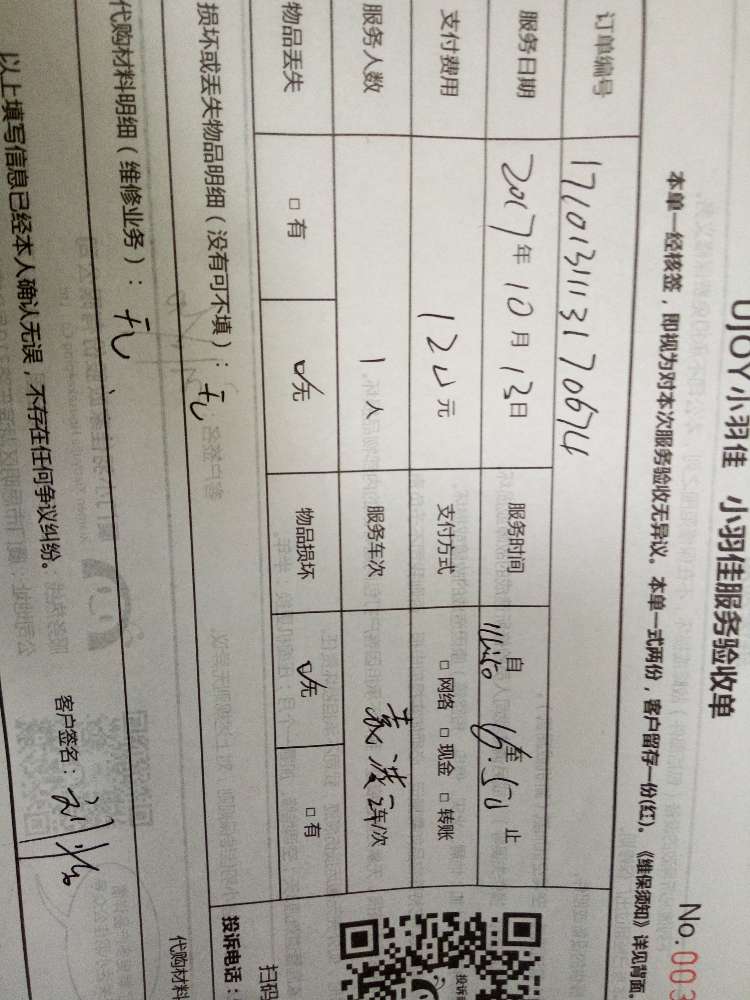 UJOY小羽佳 小羽佳服务验收单
No.003
本单一经核签，即视为对本次服务验收无异议。本单一式两份，客户留存一份(红)。《维保须知》详见背面。
订单编号 1710131113170674
服务日期 2017年10月13日 服务时间 自 至 15:50 止
支付费用 120元 支付方式 □网络 □现金 □转账
服务人数 1人 服务车次 车/次
物品丢失 □有 ☑无 物品损坏 ☑无 □有
损坏或丢失物品明细（没有可不填）：无
投诉电话：
扫码
投诉
代购材料明细（维修业务）：无、
代购材料
以上填写信息已经本人确认无误，不存在任何争议纠纷。 客户签名：